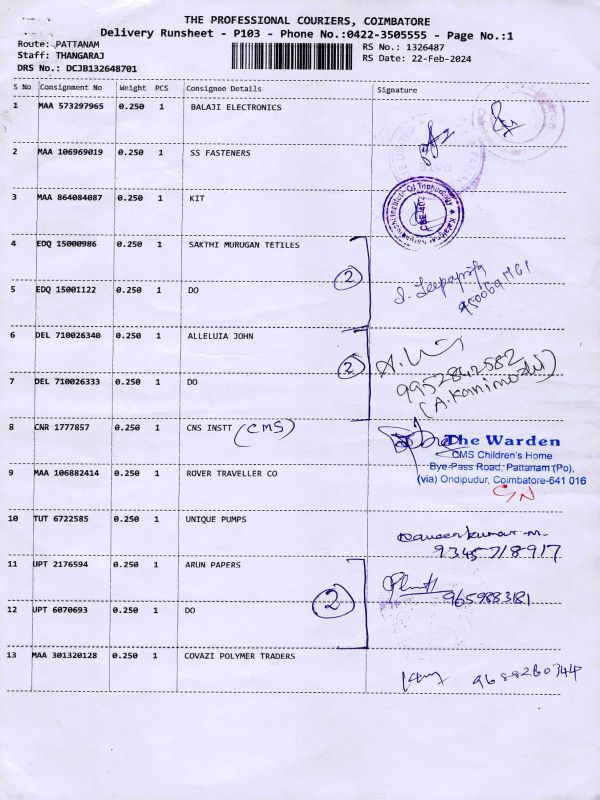 THE PROFESSIONAL COURIERS, COIMBATORE
Delivery Runsheet - P103 - Phone No.:0422-3505555 - Page No.:1
Route: PATTANAM
RS No.: 1326487
Staff: THANGARAJ
RS Date: 22-Feb-2024
DRS No.: DCJB132648701
S No Consignment No Weight PCS Consignee Details Signature
1 MAA 573297965 0.250 1 BALAJI ELECTRONICS
2 MAA 106969019 0.250 1 SS FASTENERS
3 MAA 864084087 0.250 1 KIT
Institute Of Technology
4 EDQ 15000986 0.250 1 SAKTHI MURUGAN TETILES
2
5 EDQ 15001122 0.250 1 DO
6 DEL 710026340 0.250 1 ALLELUIA JOHN
2
9952842582
7 DEL 710026333 0.250 1 DO
(A.Kanimozhi)
8 CNR 1777857 0.250 1 CNS INSTT (CMS)
The Warden
CMS Children's Home
Bye-Pass Road, Pattanam (Po),
(via) Ondipudur, Coimbatore-641 016
9 MAA 106882414 0.250 1 ROVER TRAVELLER CO
10 TUT 6722585 0.250 1 UNIQUE PUMPS
Naveenkumar.M.
9345718917
11 UPT 2176594 0.250 1 ARUN PAPERS
2
9659883181
12 UPT 6070693 0.250 1 DO
13 MAA 301320128 0.250 1 COVAZI POLYMER TRADERS
9688260344